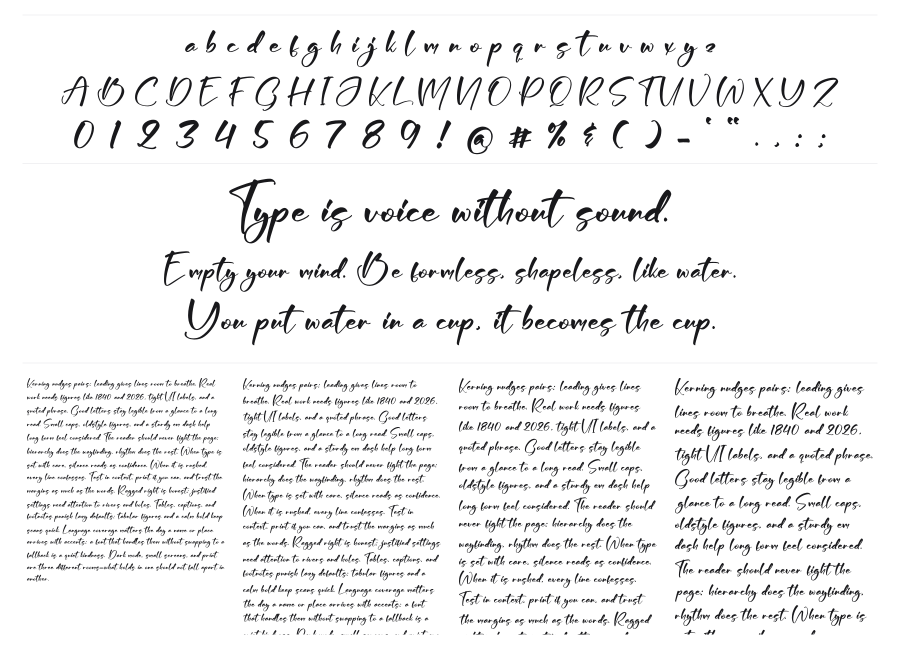 a b c d e f g h i j k l m n o p q r s t u v w x y z
A B C D E F G H I J K L M N O P Q R S T U V W X Y Z
0 1 2 3 4 5 6 7 8 9 ! @ # % & ( ) - ' " . , : ;
Type is voice without sound.
Empty your mind. Be formless, shapeless, like water.
You put water in a cup, it becomes the cup.
Kerning nudges pairs; leading gives lines room to breathe. Real
work needs figures like 1840 and 2026, tight UI labels, and a
quoted phrase. Good letters stay legible from a glance to a long
read. Small caps, oldstyle figures, and a sturdy em dash help
long form feel considered. The reader should never fight the page;
hierarchy does the wayfinding, rhythm does the rest. When type is
set with care, silence reads as confidence. When it is rushed,
every line confesses. Test in context, print if you can, and trust the
margins as much as the words. Ragged right is honest; justified
settings need attention to rivers and holes. Tables, captions, and
footnotes punish lazy defaults; tabular figures and a calm bold keep
scans quick. Language coverage matters the day a name or place
arrives with accents; a font that handles them without snapping to a
fallback is a quiet kindness. Dark mode, small screens, and print
are three different rooms—what holds in one should not fall apart in
another.
Kerning nudges pairs; leading gives lines room to
breathe. Real work needs figures like 1840 and 2026,
tight UI labels, and a quoted phrase. Good letters
stay legible from a glance to a long read. Small caps,
oldstyle figures, and a sturdy em dash help long form
feel considered. The reader should never fight the page;
hierarchy does the wayfinding, rhythm does the rest.
When type is set with care, silence reads as confidence.
When it is rushed, every line confesses. Test in
context, print if you can, and trust the margins as much
as the words. Ragged right is honest; justified settings
need attention to rivers and holes. Tables, captions, and
footnotes punish lazy defaults; tabular figures and a
calm bold keep scans quick. Language coverage matters
the day a name or place arrives with accents; a font
that handles them without snapping to a fallback is a
Kerning nudges pairs; leading gives lines
room to breathe. Real work needs figures
like 1840 and 2026, tight UI labels, and a
quoted phrase. Good letters stay legible
from a glance to a long read. Small caps,
oldstyle figures, and a sturdy em dash help
long form feel considered. The reader should
never fight the page; hierarchy does the
wayfinding, rhythm does the rest. When type
is set with care, silence reads as confidence.
When it is rushed, every line confesses.
Test in context, print if you can, and trust
the margins as much as the words. Ragged
Kerning nudges pairs; leading gives
lines room to breathe. Real work
needs figures like 1840 and 2026,
tight UI labels, and a quoted phrase.
Good letters stay legible from a
glance to a long read. Small caps,
oldstyle figures, and a sturdy em
dash help long form feel considered.
The reader should never fight the
page; hierarchy does the wayfinding,
rhythm does the rest. When type is